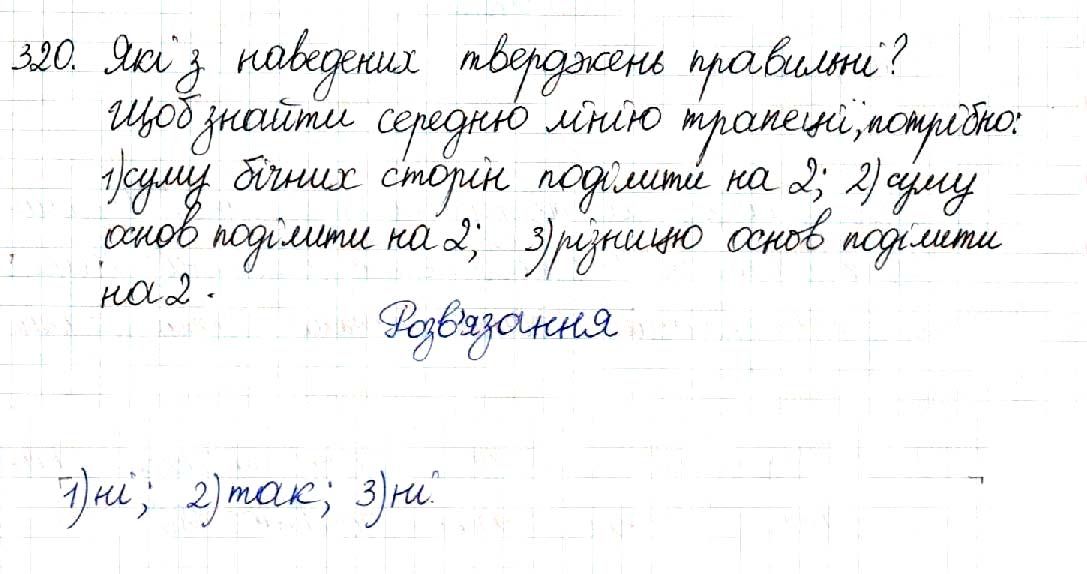 320. Які з наведених тверджень правильні?
Щоб знайти середню лінію трапеції, потрібно:
1) суму бічних сторін поділити на 2; 2) суму
основ поділити на 2; 3) різницю основ поділити
на 2.
Розв'язання
1) ні; 2) так; 3) ні.